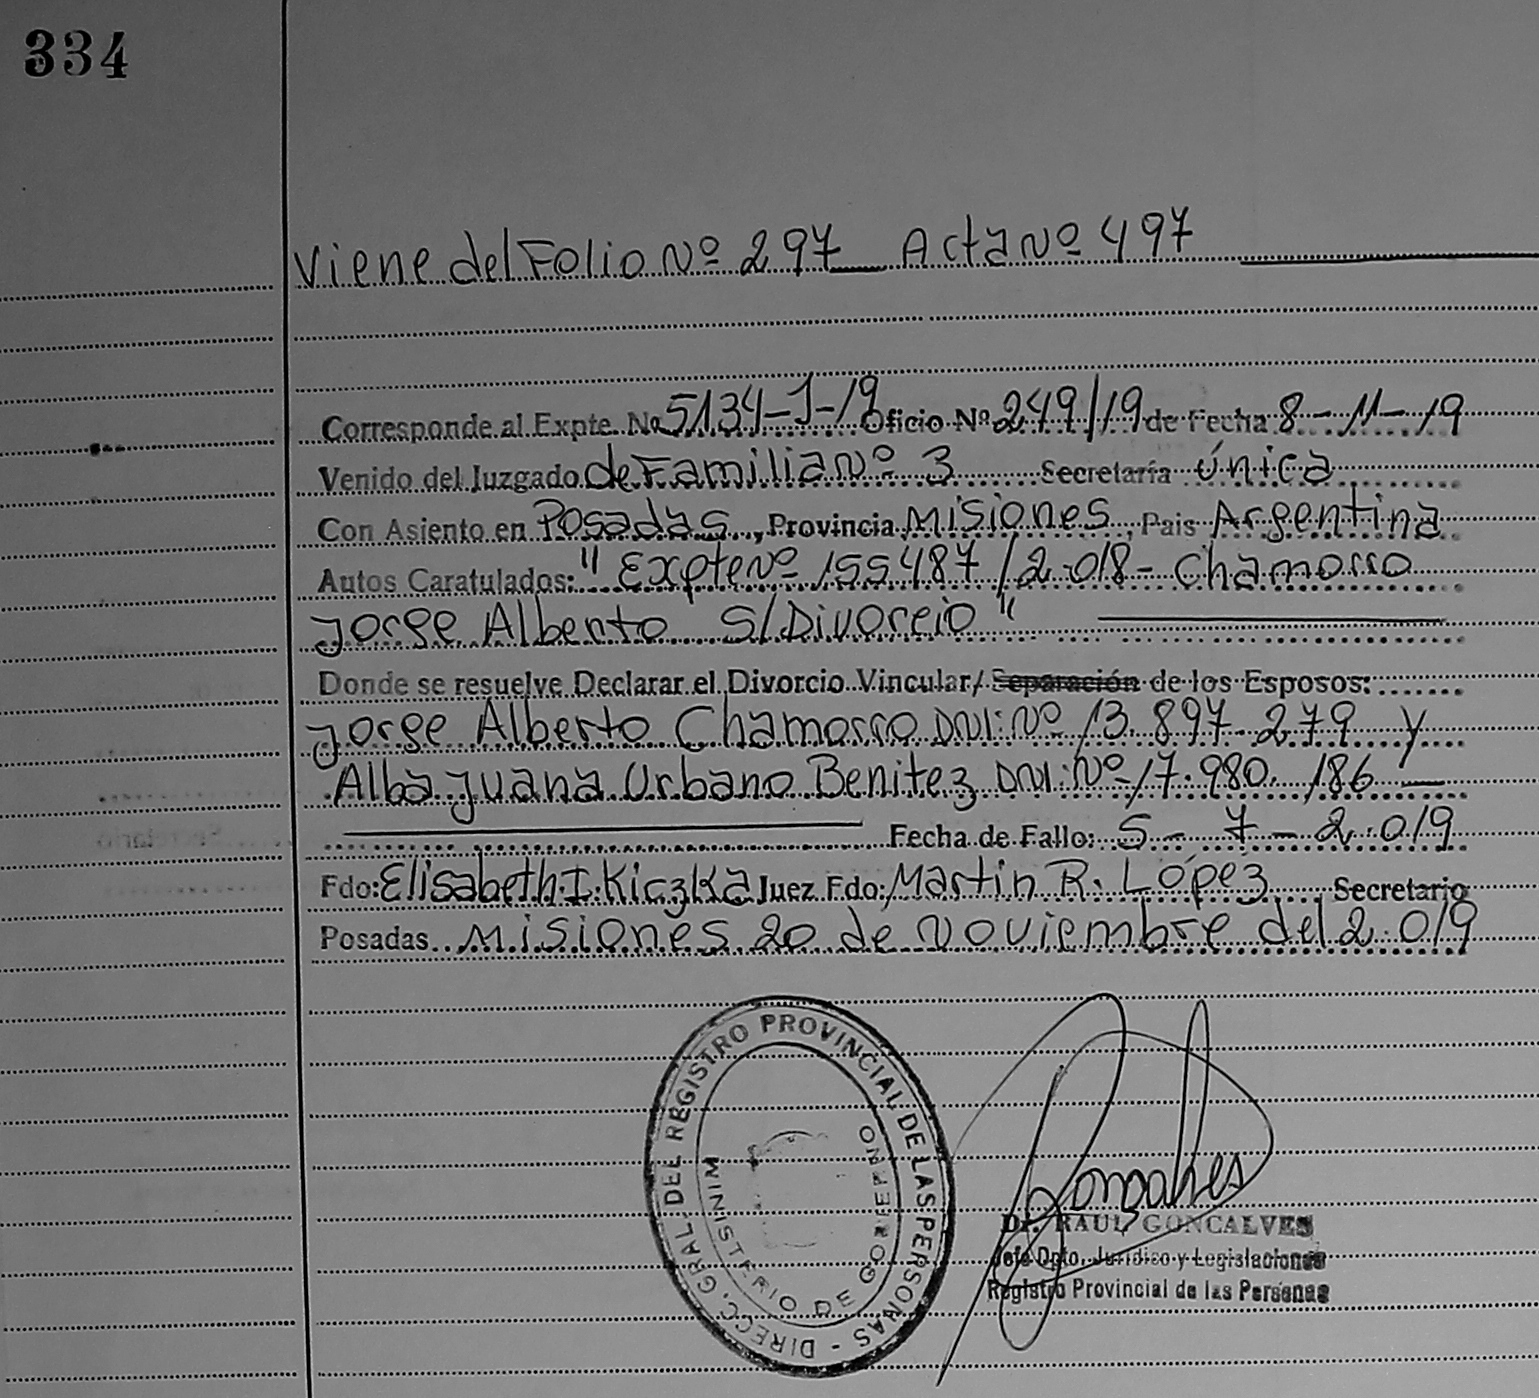 334
Viene del Folio Nº 297 Acta Nº 497
Corresponde al Expte. Nº 5134-J-19 Oficio Nº 249/19 de Fecha 8-11-19
Venido del Juzgado de Familia Nº 3 Secretaría Única
Con Asiento en Posadas, Provincia Misiones, Pais Argentina
Autos Caratulados: "Expte Nº 155487/2.018- Chamorro
Jorge Alberto S/Divorcio"
Donde se resuelve Declarar el Divorcio Vincular/ Separación de los Esposos:
Jorge Alberto Chamorro DNI: Nº 13.897.279 y
Alba Juana Urbano Benitez DNI: Nº 17.980.186
Fecha de Fallo: 5-7-2.019
Fdo: Elisabeth I. Kiczka Juez Fdo: Martin R. López Secretario
Posadas Misiones 20 de Noviembre del 2.019
DIRECC. GRAL DEL REGISTRO PROVINCIAL DE LAS PERSONAS -
MINISTERIO DE GOBIERNO
Goncalves
Dr. RAUL GONCALVES
Jefe Dpto. Jurídico y Legislaciones
Registro Provincial de las Personas